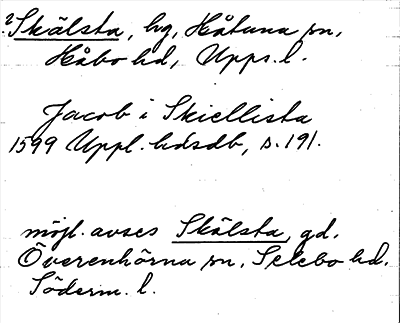 ?Skälsta, hg, Håtuna sn,
Håbo hd, Upps. l.
Jacob i Skiellista
1599 Uppl. hdsdb, s. 191.
möjl. avses Skälsta, gd,
Överenhörna sn, Selebo hd.
Söderm. l.